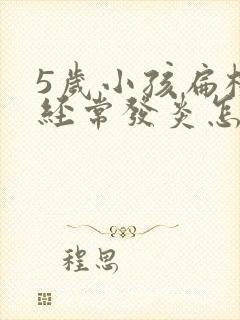 5歲小孩扁
經常發炎怎
程思